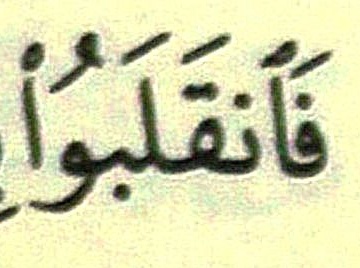 فَٱنقَلَبُوا۟